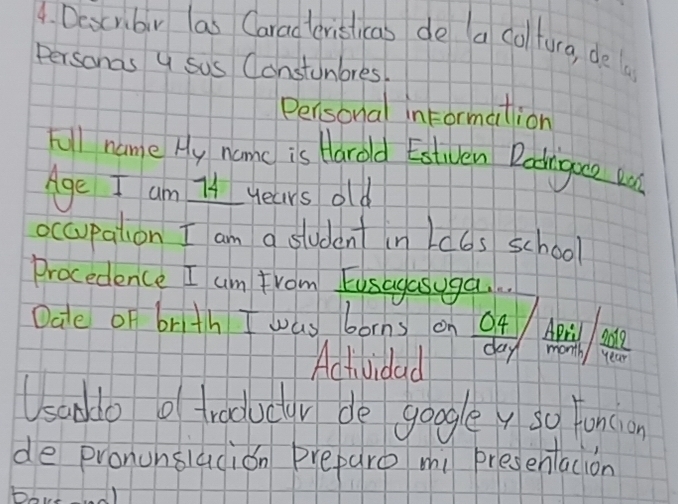 4. Describir las Caracteristicas de la coltura, de las
Personas y sus Constunbres.
Personal information
Full name My name is Harold Estiven
Age I am 14 years old
occupation I am a student in school
Procedence I am from Fusagasuga...
Date of brith I was borns on 04 / April / 2012
day month year
Actividad
Usando el traductor de google y so funcion
de pronunsiación preparo mi presentación